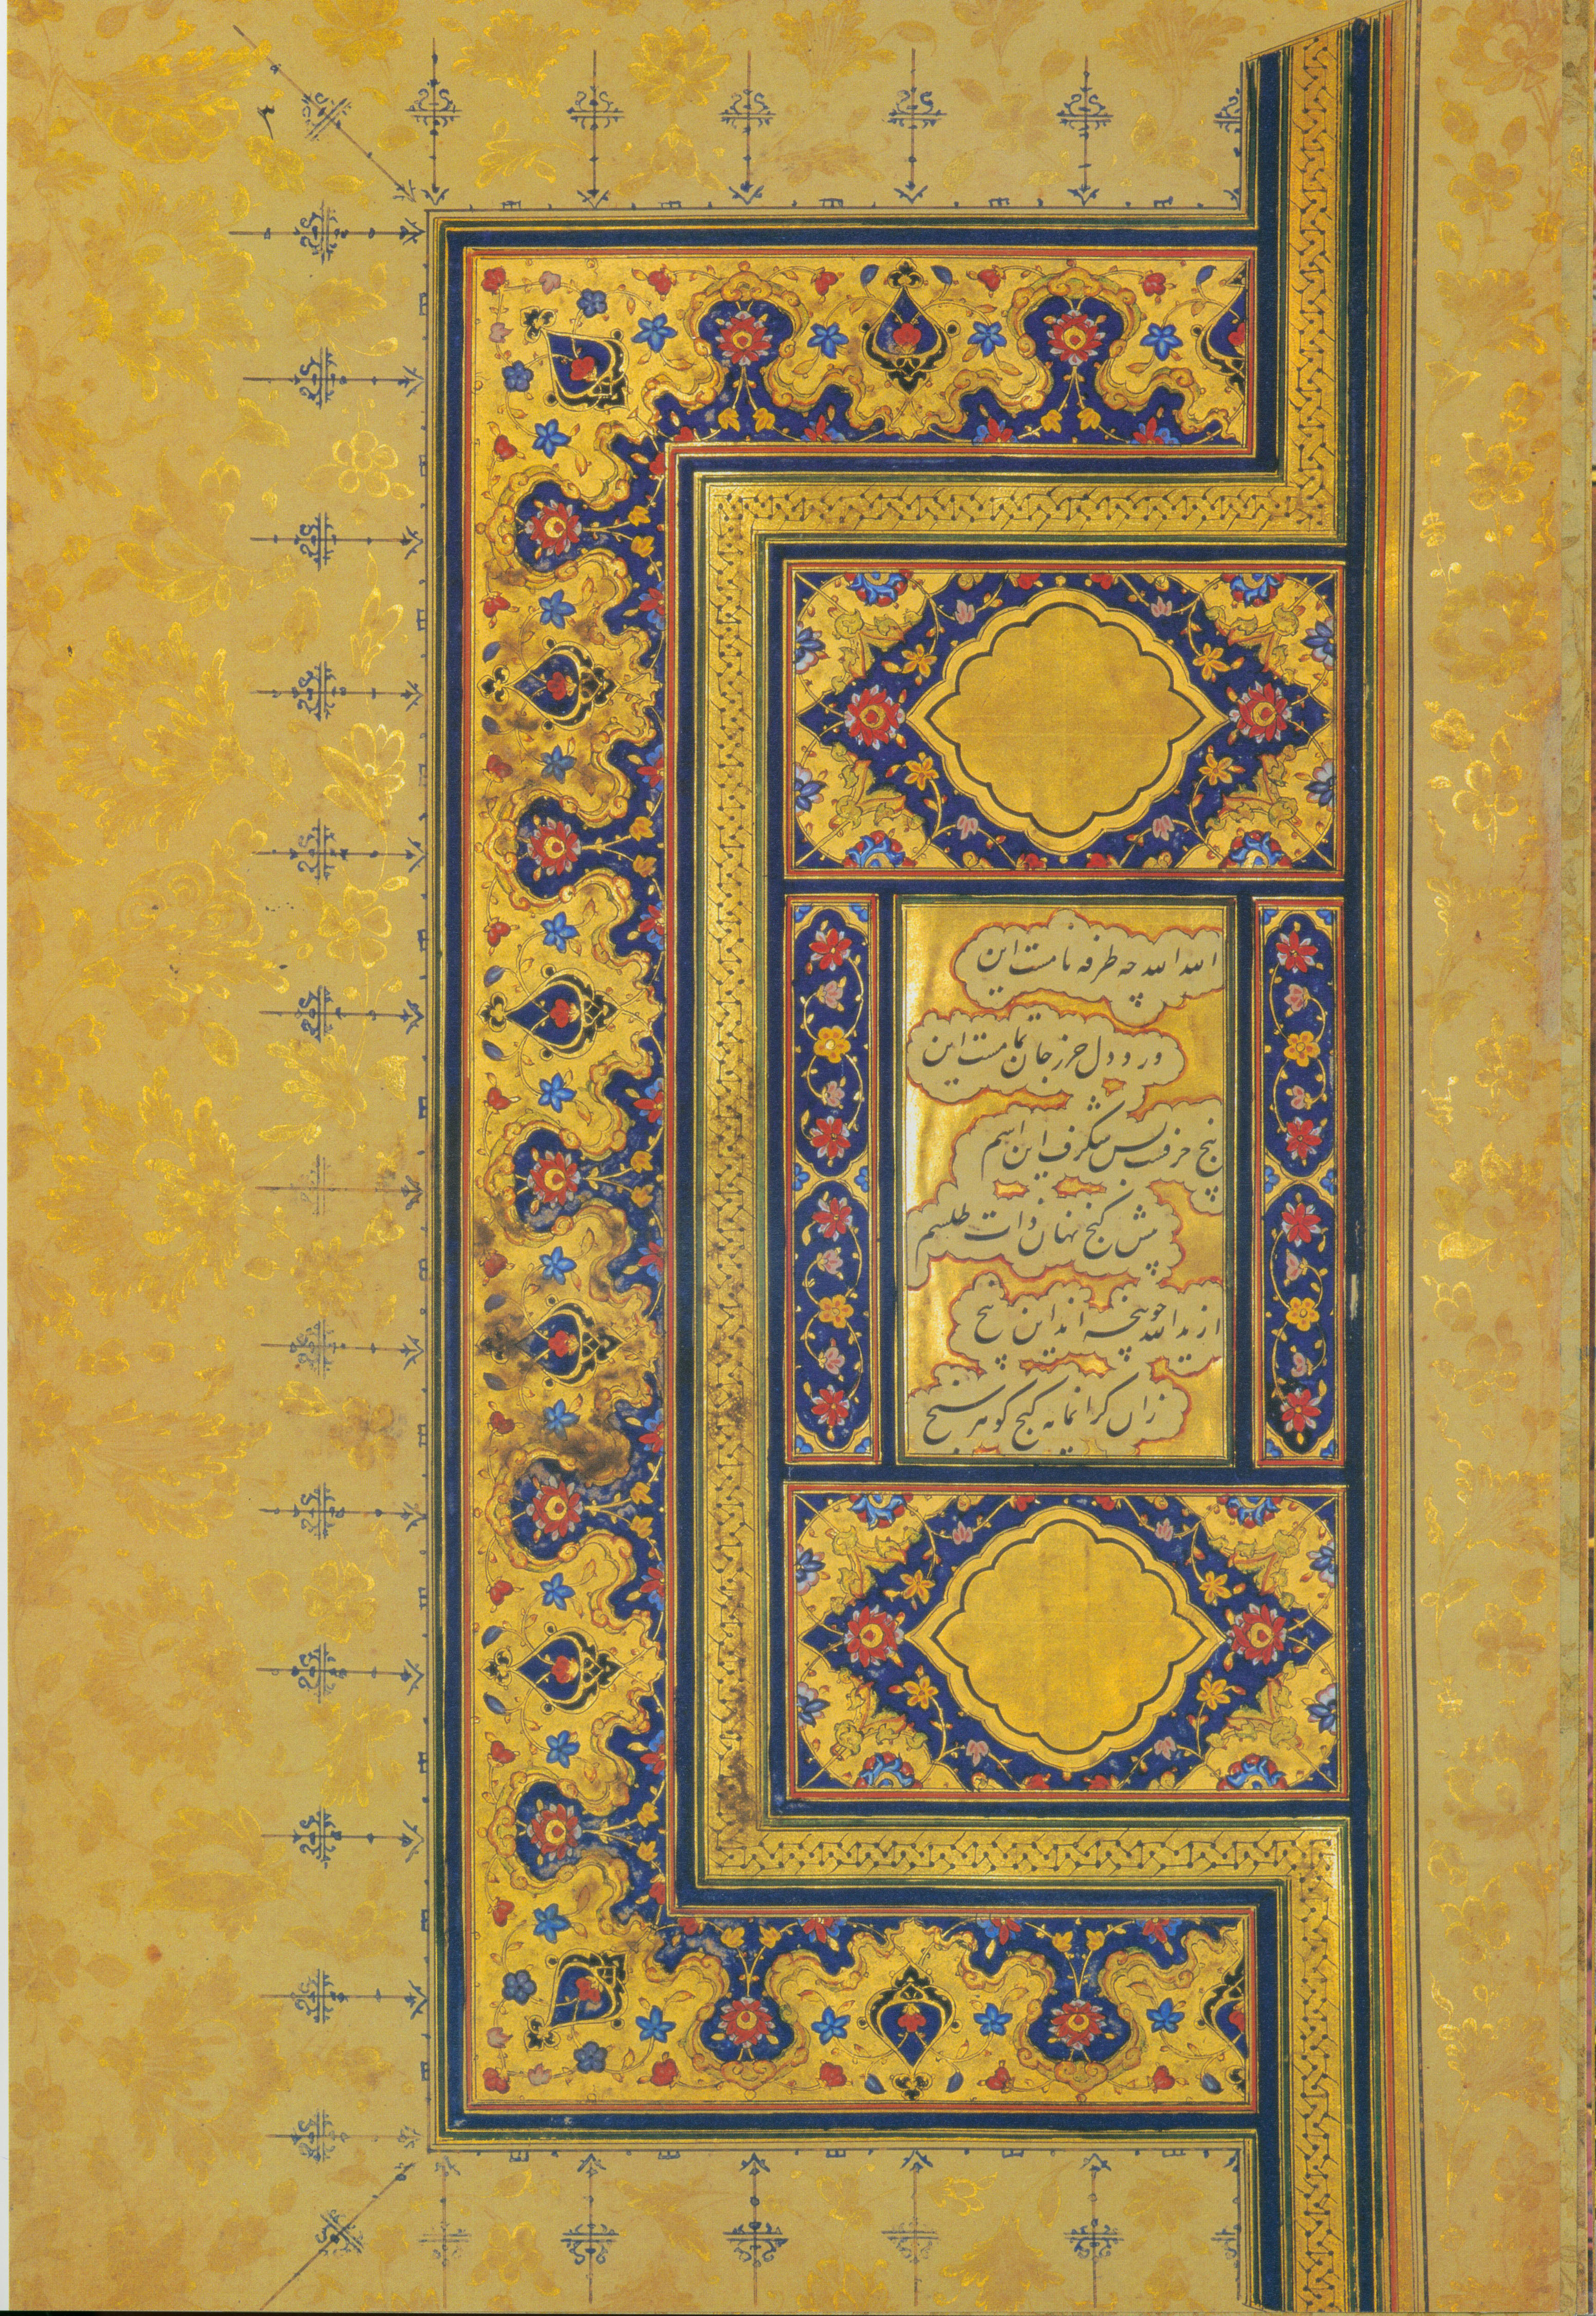 الله الله چه طرفه نامست این
ورد دل حرز جان تمامست این
پنج حرفست بس شگرف این اسم
پیش گنج نهان ذات طلسم
از ید الله چو پنجه اند این پنج
زان گرانمایه گنج گوهر سنج